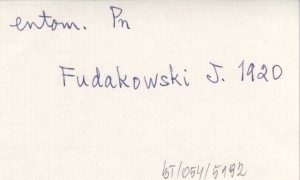 entom. Pn
Fudakowski J. 1920
bT/054/5192